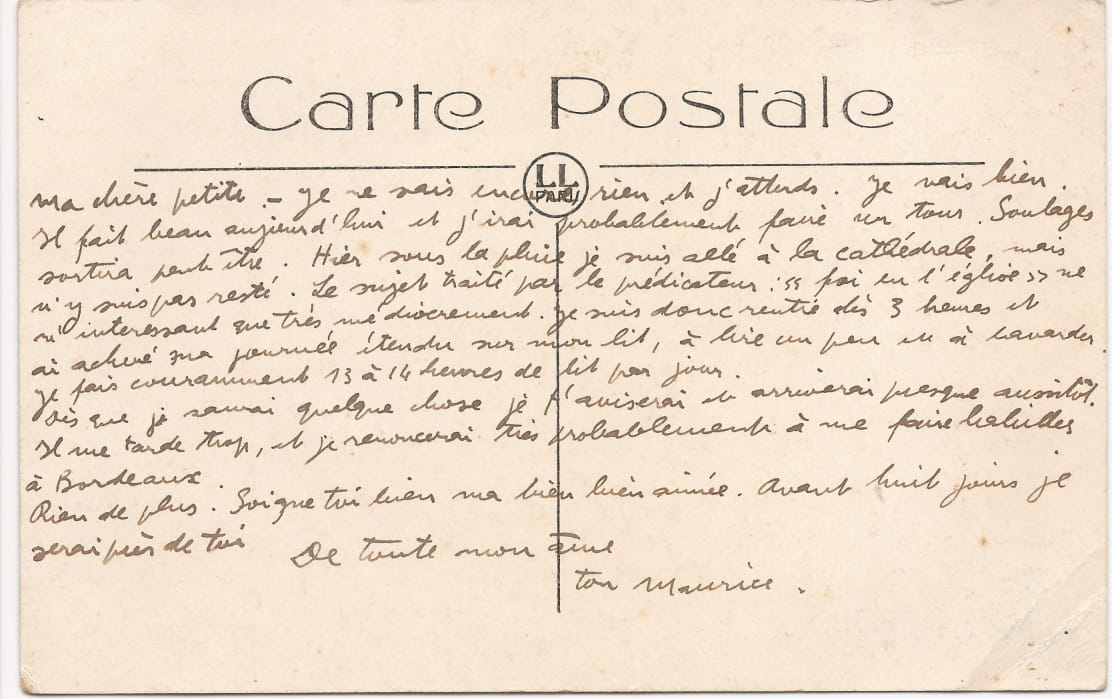 Carte Postale
LL
PARIS
Ma chère petite. _ Je ne sais encore rien et j'attends. Je vais bien.
Il fait beau aujourd'hui et j'irai probablement faire un tour. Soulages
sortira peut être. Hier sous la pluie je suis allé à la cathédrale, mais
n'y suis pas resté. Le sujet traité par le prédicateur : « foi en l'église » ne
m'interessant que très médiocrement. Je suis donc rentré dès 3 heures et
ai achevé ma journée étendu sur mon lit, à lire un peu et à bavarder.
Je fais couramment 13 à 14 heures de lit par jour.
Dès que je saurai quelque chose je t'aviserai et arriverai presque aussitôt.
Il me tarde trop, et je renoncerai très probablement à me faire habiller
à Bordeaux.
Rien de plus. Soigne toi bien ma bien bien aimée. Avant huit jours je
serai près de toi
De toute mon âme
ton Maurice.